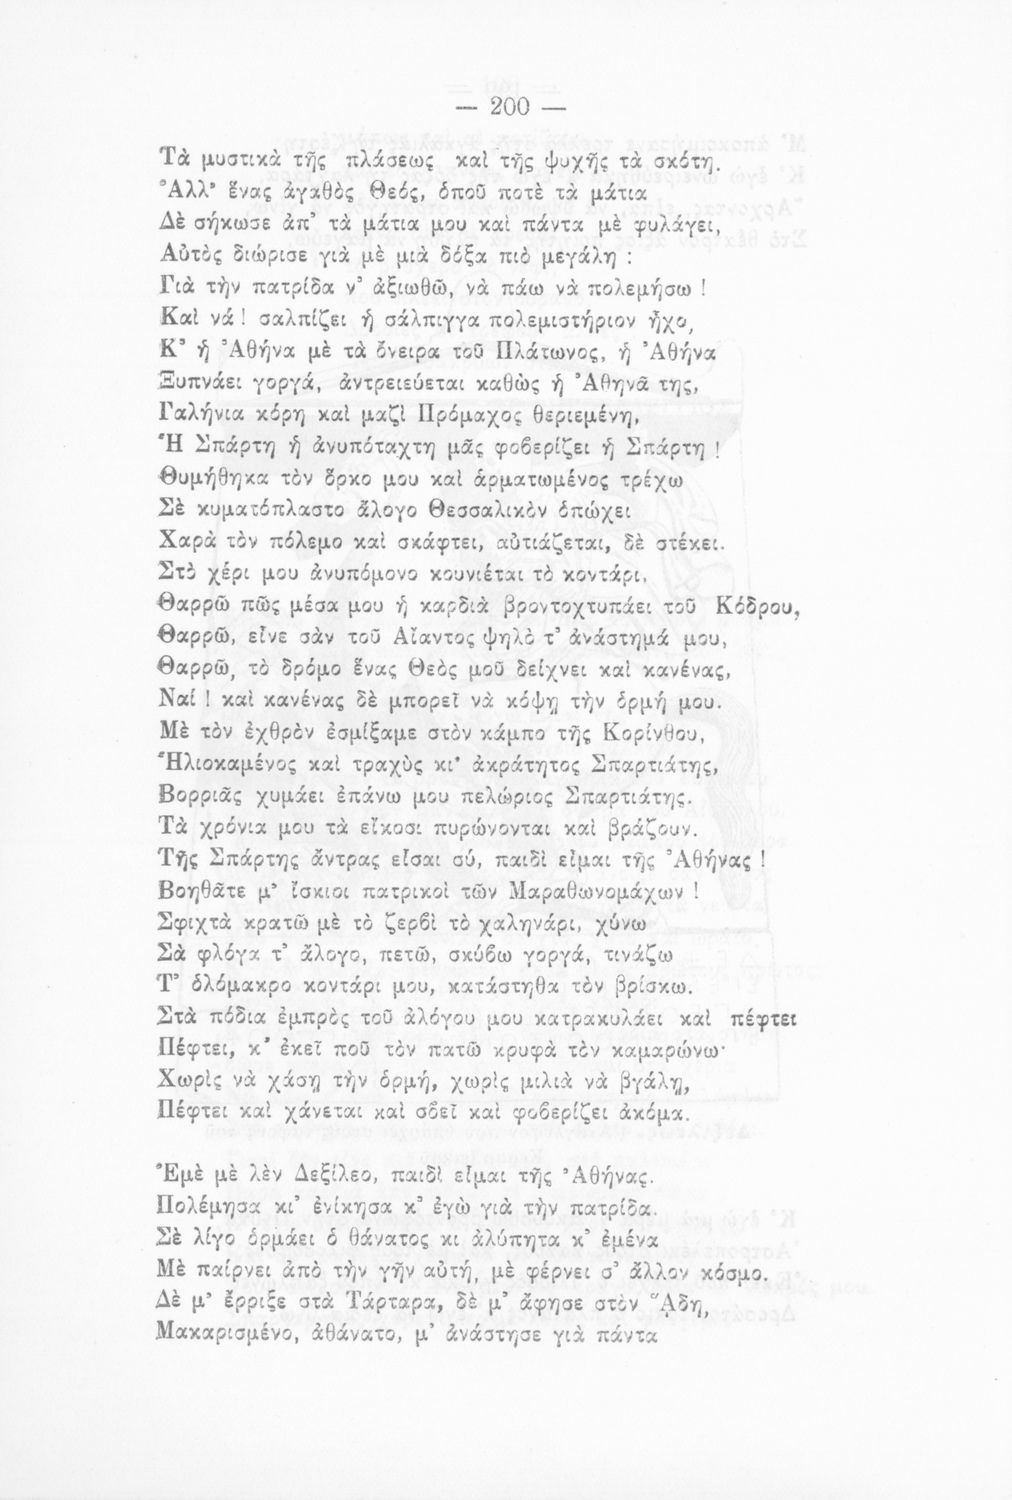 — 200 —
Τὰ μυστικὰ τῆς πλάσεως καὶ τῆς ψυχῆς τὰ σκότη.
Ἀλλ’ ἕνας ἀγαθὸς Θεός, ὁποῦ ποτὲ τὰ μάτια
Δὲ σήκωσε ἀπ’ τὰ μάτια μου καὶ πάντα μὲ φυλάγει,
Αὐτὸς διώρισε γιὰ μὲ μιὰ δόξα πιὸ μεγάλη :
Γιὰ τὴν πατρίδα ν’ ἀξιωθῶ, νὰ πάω νὰ πολεμήσω !
Καὶ νά ! σαλπίζει ἡ σάλπιγγα πολεμιστήριον ἦχο,
Κ’ ἡ Ἀθήνα μὲ τὰ ὄνειρα τοῦ Πλάτωνος, ἡ Ἀθήνα
Ξυπνάει γοργά, ἀντρειεύεται καθὼς ἡ Ἀθηνᾶ της,
Γαλήνια κόρη καὶ μαζὶ Πρόμαχος θεριεμένη,
Ἡ Σπάρτη ἡ ἀνυπόταχτη μᾶς φοβερίζει ἡ Σπάρτη !
Θυμήθηκα τὸν ὅρκο μου καὶ ἁρματωμένος τρέχω
Σὲ κυματόπλαστο ἄλογο Θεσσαλικὸν ὁπὤχει
Χαρὰ τὸν πόλεμο καὶ σκάφτει, αὐτιάζεται, δὲ στέκει.
Στὸ χέρι μου ἀνυπόμονο κουνιέται τὸ κοντάρι.
Θαρρῶ πῶς μέσα μου ἡ καρδιὰ βροντοχτυπάει τοῦ Κόδρου,
Θαρρῶ, εἶνε σὰν τοῦ Αἴαντος ψηλὸ τ’ ἀνάστημά μου,
Θαρρῶ, τὸ δρόμο ἕνας Θεὸς μοῦ δείχνει καὶ κανένας,
Ναί ! καὶ κανένας δὲ μπορεῖ νὰ κόψῃ τὴν ὁρμή μου.
Μὲ τὸν ἐχθρὸν ἐσμίξαμε στὸν κάμπο τῆς Κορίνθου,
Ἡλιοκαμένος καὶ τραχὺς κι’ ἀκράτητος Σπαρτιάτης,
Βορριᾶς χυμάει ἐπάνω μου πελώριος Σπαρτιάτης.
Τὰ χρόνια μου τὰ εἴκοσι πυρώνονται καὶ βράζουν.
Τῆς Σπάρτης ἄντρας εἶσαι σύ, παιδὶ εἶμαι τῆς Ἀθήνας !
Βοηθᾶτε μ’ ἴσκιοι πατρικοὶ τῶν Μαραθωνομάχων !
Σφιχτὰ κρατῶ μὲ τὸ ζερβὶ τὸ χαληνάρι, χύνω
Σὰ φλόγα τ’ ἄλογο, πετῶ, σκύβω γοργά, τινάζω
Τ’ ὁλόμακρο κοντάρι μου, κατάστηθα τὸν βρίσκω.
Στὰ πόδια ἐμπρὸς τοῦ ἀλόγου μου κατρακυλάει καὶ πέφτει
Πέφτει, κ’ ἐκεῖ ποῦ τὸν πατῶ κρυφὰ τὸν καμαρώνω·
Χωρὶς νὰ χάσῃ τὴν ὁρμή, χωρὶς μιλιὰ νὰ βγάλῃ,
Πέφτει καὶ χάνεται καὶ σβεῖ καὶ φοβερίζει ἀκόμα.
Ἐμὲ μὲ λὲν Δεξίλεο, παιδὶ εἶμαι τῆς Ἀθήνας.
Πολέμησα κι’ ἐνίκησα κ’ ἐγὼ γιὰ τὴν πατρίδα.
Σὲ λίγο ὁρμάει ὁ θάνατος κι ἀλύπητα κ’ ἐμένα
Μὲ παίρνει ἀπὸ τὴν γῆν αὐτή, μὲ φέρνει σ’ ἄλλον κόσμο.
Δὲ μ’ ἔρριξε στὰ Τάρταρα, δὲ μ’ ἄφησε στὸν ᾍδη,
Μακαρισμένο, ἀθάνατο, μ’ ἀνάστησε γιὰ πάντα